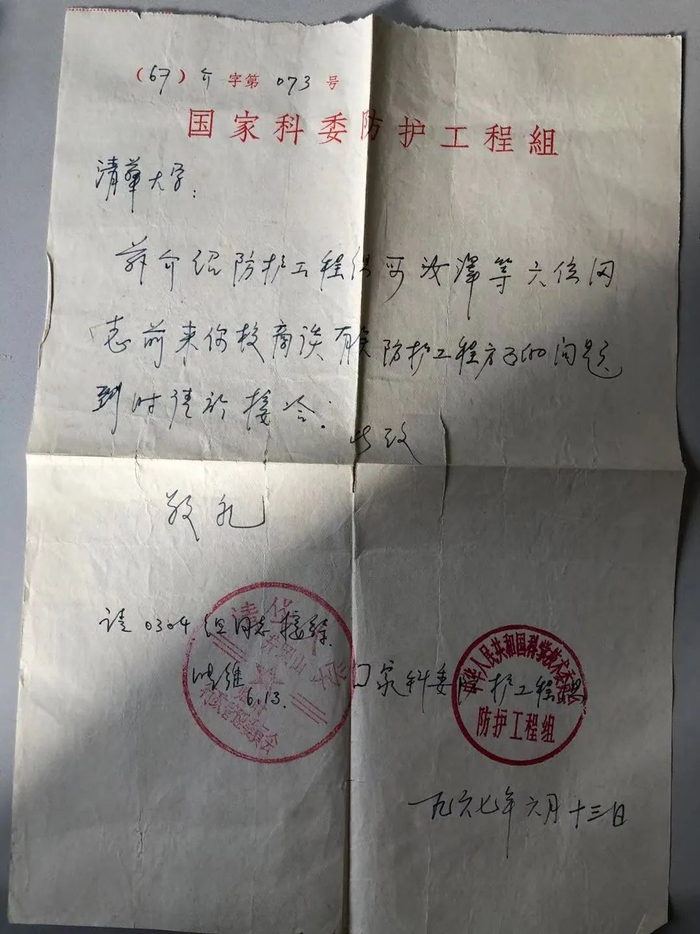 (67) 介 字第 073 号
国家科委防护工程組
清华大学:
兹介绍防护工程组 汝泽等六位同
志前来你校商谈有关防护工程方面的问题
到时请予接洽: 此致
敬礼
请0304组同志接谈.
6.13.
国家科委防护工程组
清华大学
中华人民共和国科学技术委员会
防护工程組
一九六七年六月十三日